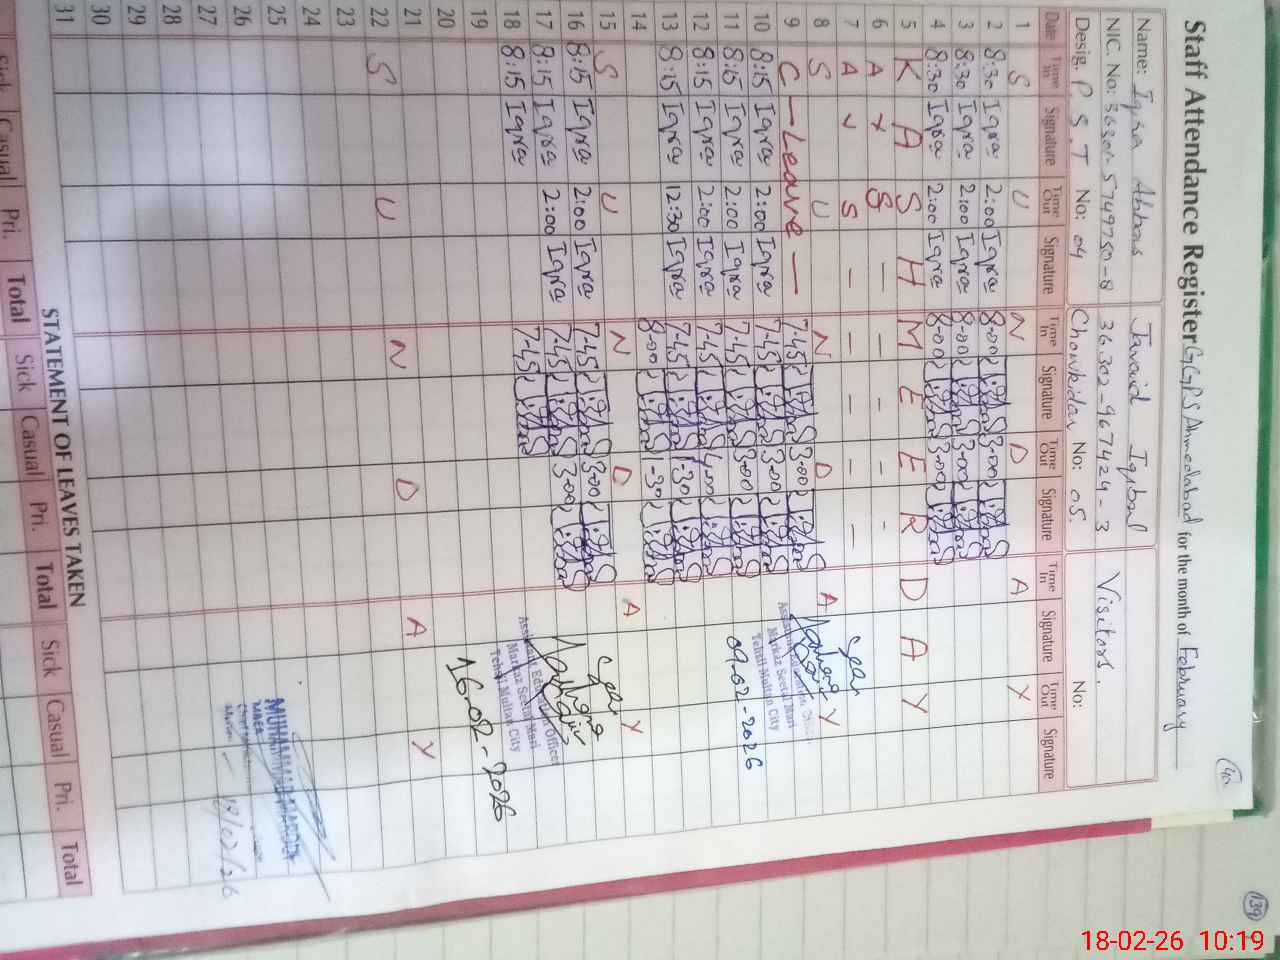 Staff Attendance Register G.G.P.S Ahmedabad for the month of February
40
Name: Iqra Abbas
Javaid Iqbal
Visitors.
NIC. No: 36301-5749750-8
36302-967424-3
Desig. P.S.T No: 04
Chowkidar No: 05.
No:
Date Time In Signature Time Out Signature Time In Signature Time Out Signature Time In Signature Time Out Signature
1 S U N D A Y
2 8:30 Iqra 2:00 Iqra 8-00 3-00
3 8:30 Iqra 2:00 Iqra 8-00 3-00
4 8:30 Iqra 2:00 Iqra 8-00 3-00
5 K A S H M E E R D A Y
6 A x S - - - - -
7 A v S - - - - -
8 S U N D A Y
9 C - Leave - 7-45 3-00
10 8:15 Iqra 2:00 Iqra 7-45 3-00
11 8:15 Iqra 2:00 Iqra 7-45 3-00
12 8:15 Iqra 2:00 Iqra 7-45 4-00
13 8:15 Iqra 12:30 Iqra 7-45 1-30
14 8-00 -30
15 S U N D A Y
16 8:15 Iqra 2:00 Iqra 7-45 3-00
17 8:15 Iqra 2:00 Iqra 7-45 3-00
18 8:15 Iqra 7-45
19
20
21
22 S U N D A Y
23
24
25
26
27
28
29
30
31
Assistant Education Officer
Markaz Seetal Mari
Tehsil Multan City
09.02-2026
Assistant Education Officer
Markaz Seetal Mari
Tehsil Multan City
16.02-2026
MUHAMMAD
MAEA
18/02/26
STATEMENT OF LEAVES TAKEN
Sick Casual Pri. Total Sick Casual Pri. Total Sick Casual Pri. Total
139
18-02-26 10:19